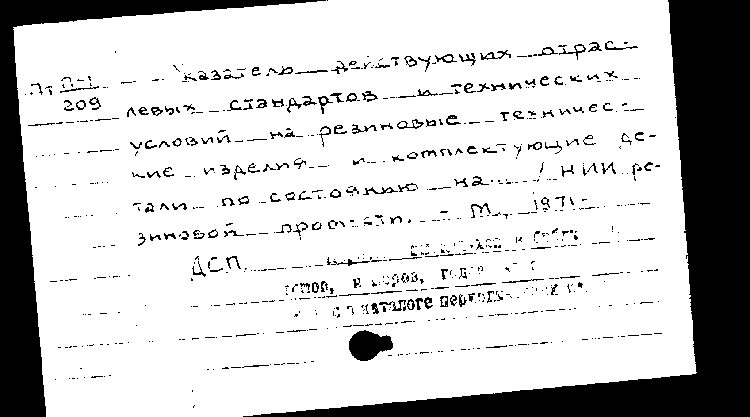 Пт П-1 Указатель действующих отрас-
209 левых стандартов и технических
условий на резиновые техничес-
кие изделия и комплектующие де-
тали по состоянию на... / НИИ ре-
зиновой пром-сти. - М., 1971-
ДСП
томов, номеров, годов
каталоге